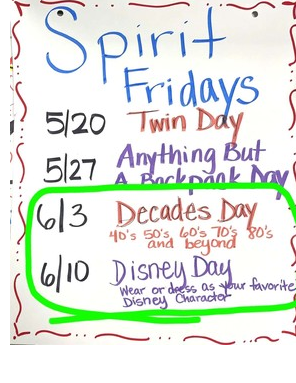 Spirit
Fridays
5/20 Twin Day
5/27 Anything But
A Backpack Day
6/3 Decades Day
40's 50's, 60's 70's 80's
and beyond
6/10 Disney Day
Wear or dress as your favorite
Disney Character